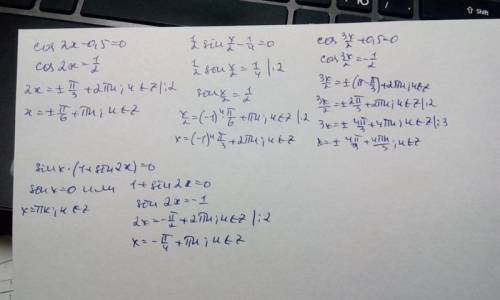 cos 2x - 0,5 = 0
cos 2x = 1/2
2x = ± π/3 + 2πn; n ∈ Z |:2
x = ± π/6 + πn; n ∈ Z
1/2 sin x/2 - 1/4 = 0
1/2 sin x/2 = 1/4 |·2
sin x/2 = 1/2
x/2 = (-1)ⁿ π/6 + πn; n ∈ Z |·2
x = (-1)ⁿ π/3 + 2πn; n ∈ Z
cos 3x/2 + 0,5 = 0
cos 3x/2 = -1/2
3x/2 = ± (π - π/3) + 2πn; n ∈ Z
3x/2 = ± 2π/3 + 2πn; n ∈ Z |·2
3x = ± 4π/3 + 4πn; n ∈ Z |:3
x = ± 4π/9 + 4πn/3; n ∈ Z
sin x · (1 + sin 2x) = 0
sin x = 0 или 1 + sin 2x = 0
x = πk; n ∈ Z
sin 2x = -1
2x = - π/2 + 2πn; n ∈ Z |:2
x = - π/4 + πn; n ∈ Z